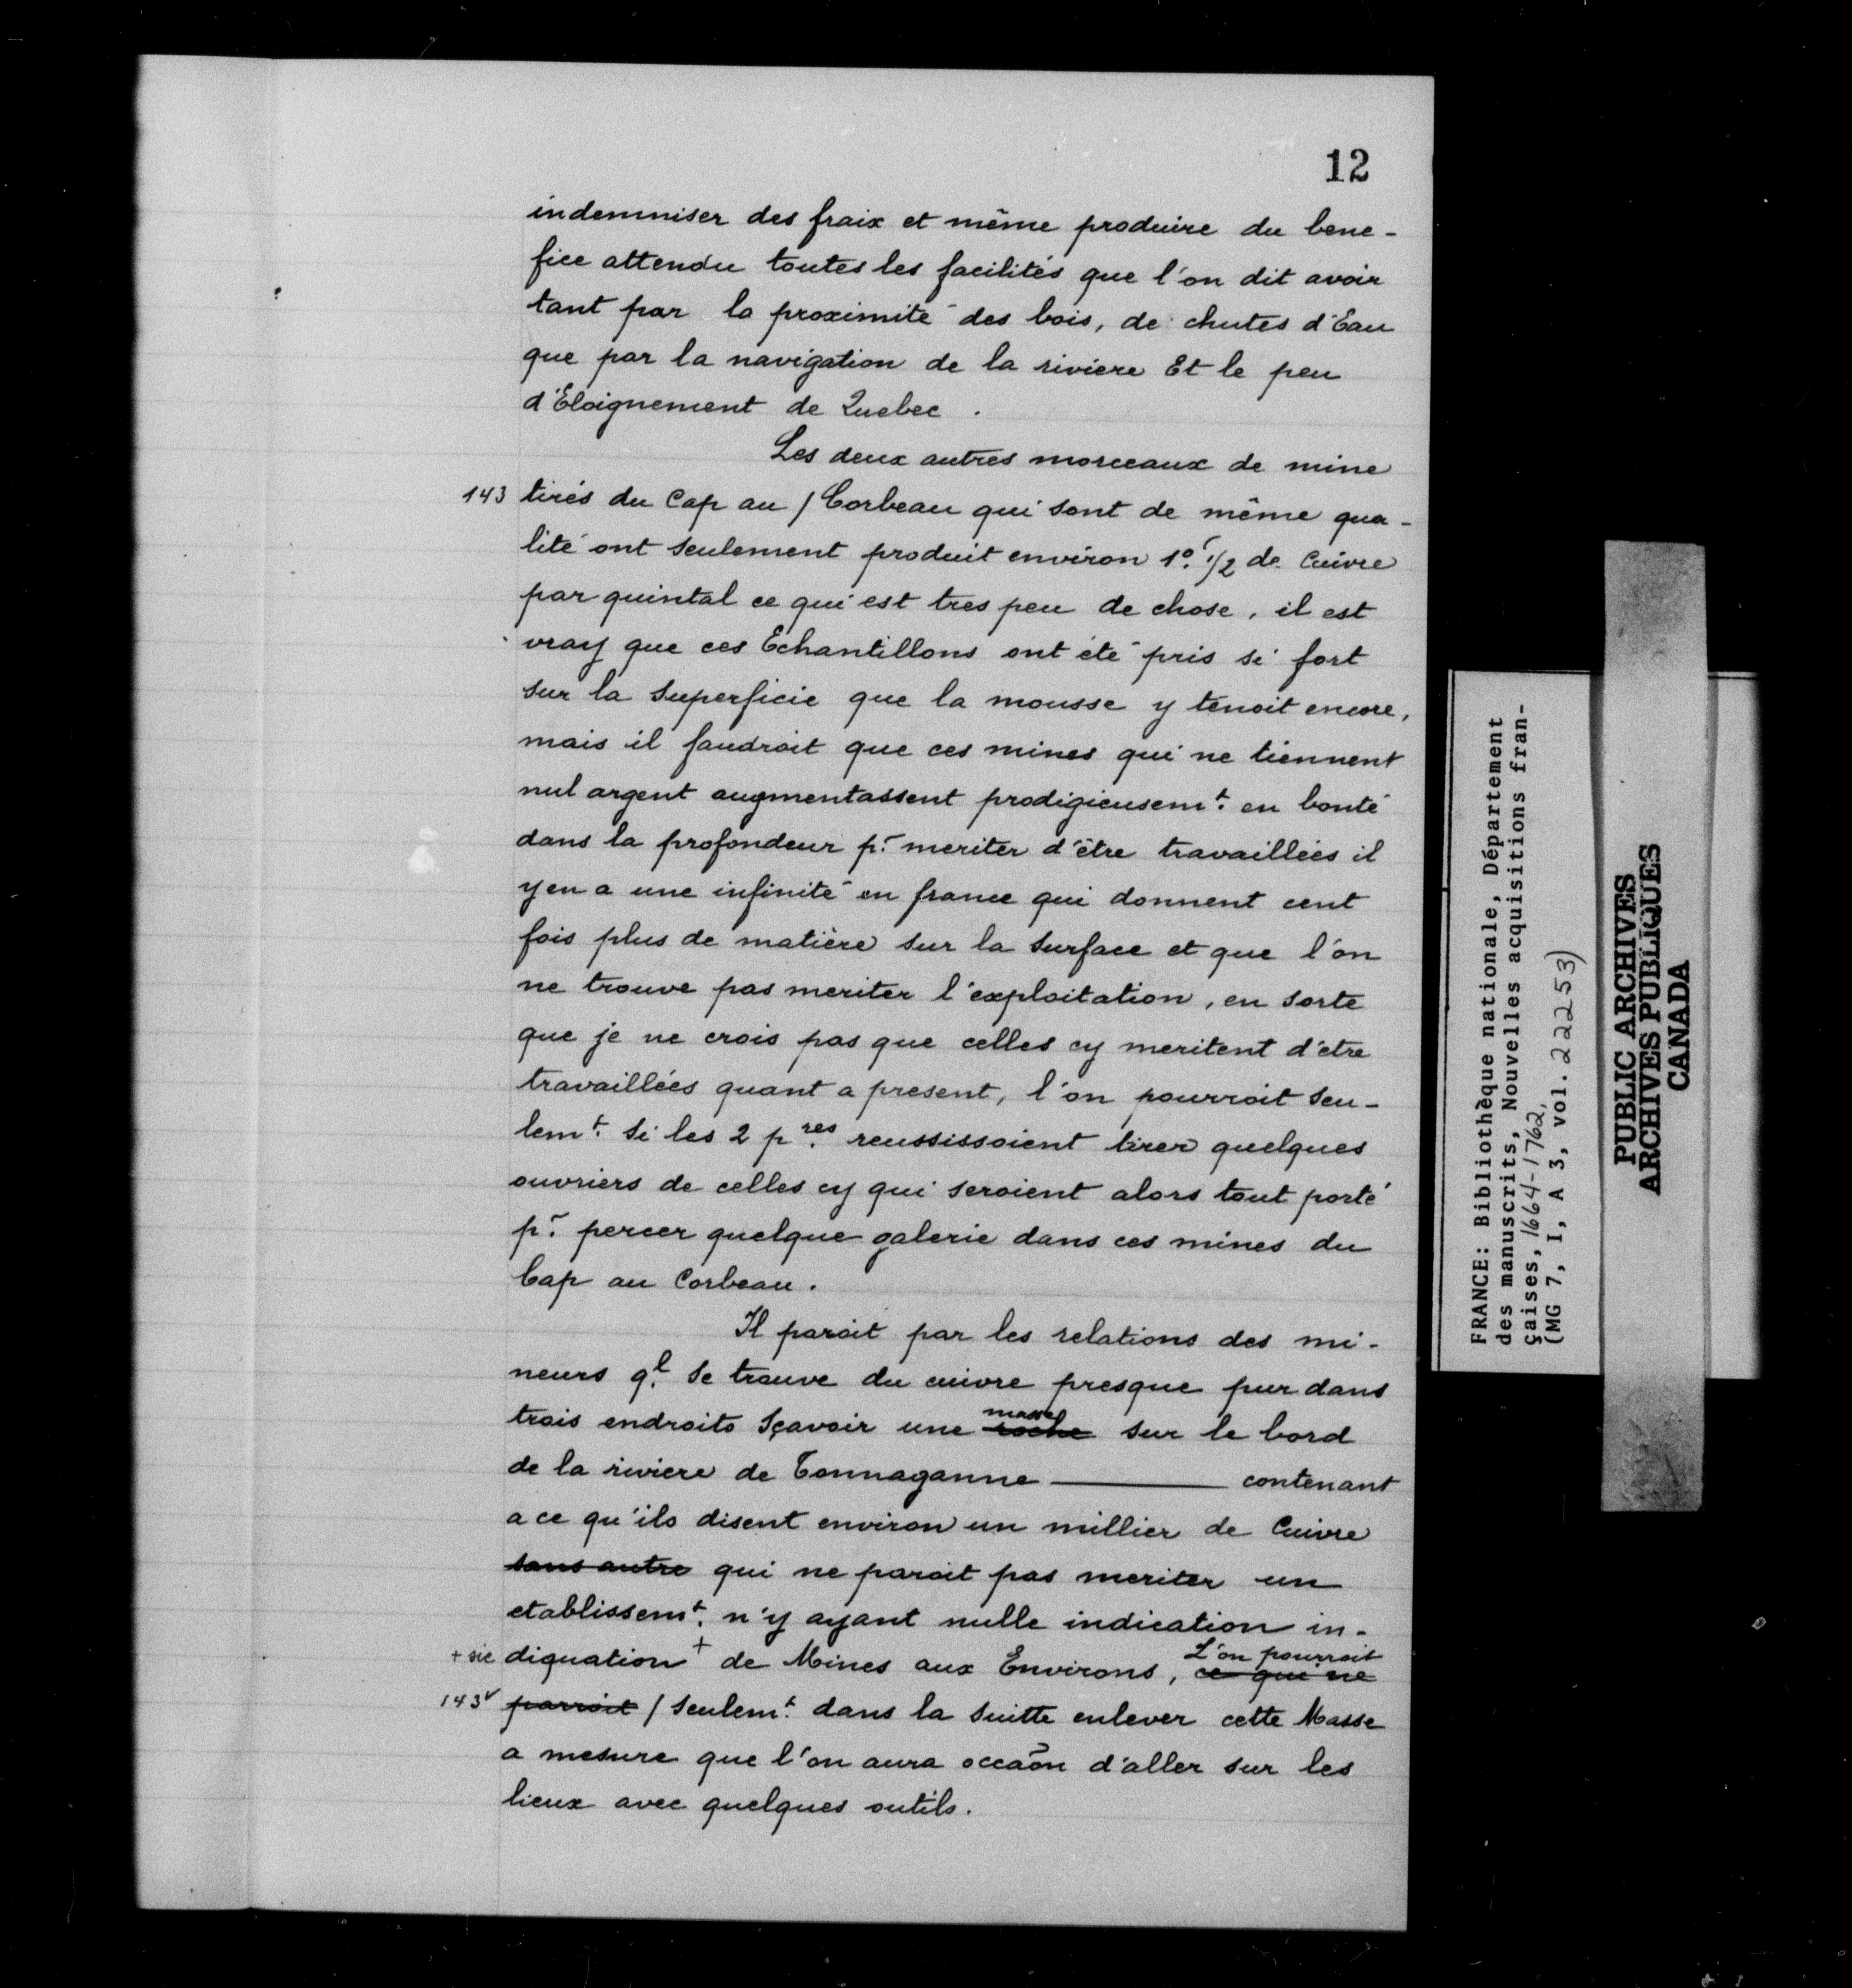 12
indemniser des fraix et même produire du bene-
fice attendu toutes les facilités que l'on dit avoir
tant par la proximité des bois, de chutes d'Eau
que par la navigation de la riviere Et le peu
d'Eloignement de Quebec.
Les deux autres morceaux de mine
143 tirés du Cap au / Corbeau qui sont de même qua-
lité ont seulement produit environ 1° 1/2 de Cuivre
par quintal ce qui est tres peu de chose, il est
vray que ces Echantillons ont été pris si fort
sur la superficie que la mousse y tenoit encore,
mais il faudroit que ces mines qui ne tiennent
nul argent augmentassent prodigieusemt. en bonté
dans la profondeur pr. meriter d'être travaillées il
y en a une infinité en france qui donnent cent
fois plus de matière sur la surface et que l'on
ne trouve pas meriter l'exploitation, en sorte
que je ne crois pas que celles cy meritent d'etre
travaillées quant a present, l'on pourroit seu-
lemt. si les 2 pres. reussissoient tirer quelques
ouvriers de celles cy qui seroient alors tout porté
pr. percer quelque galerie dans ces mines du
Cap au Corbeau.
Il paroit par les relations des mi-
neurs ql. se trouve du cuivre presque pur dans
masse
trois endroits sçavoir une roche sur le bord
de la riviere de Tonnaganne ——— contenant
a ce qu'ils disent environ un millier de Cuivre
sans autre qui ne paroit pas meriter un
etablissemt. n'y ayant nulle indication in-
L'on pourroit
+ sic diquation + de Mines aux Environs, ce qui ne
143v parroit / seulemt. dans la suitte enlever cette Masse
a mesure que l'on aura occaõn d'aller sur les
lieux avec quelques outils.
FRANCE: Bibliothèque nationale, Département
des manuscrits, Nouvelles acquisitions fran-
çaises, 1664-1762,
(MG 7, I, A 3, vol. 22253)
PUBLIC ARCHIVES
ARCHIVES PUBLIQUES
CANADA